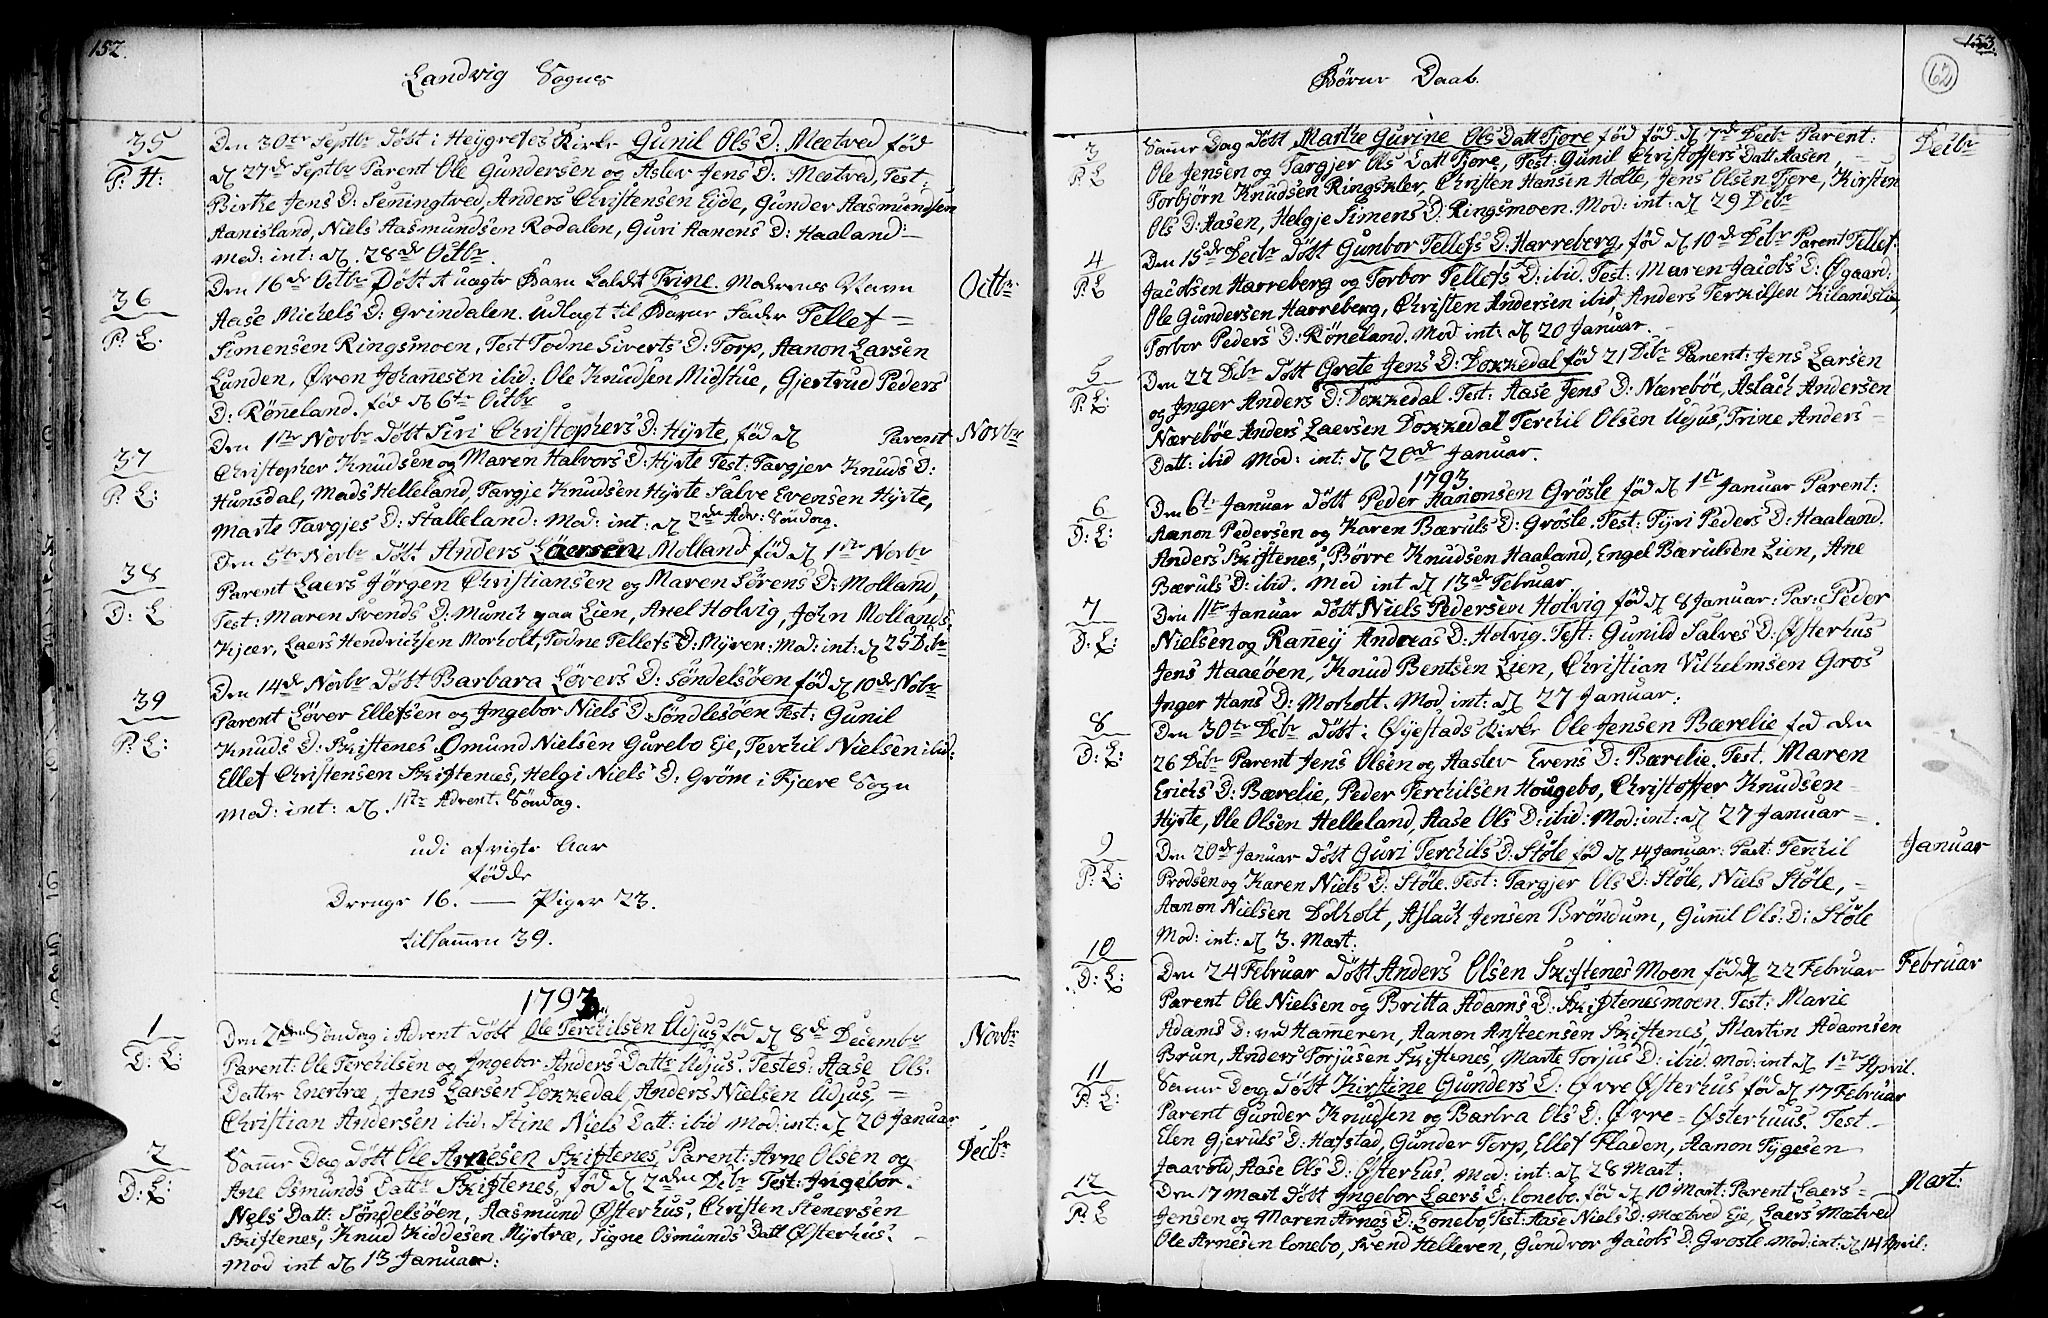 152.
Landvig Sogns
35
P: H:
Den 30te Septbr døbt i Høygrefes Kirke Gunil Ols D: Mættved fød
d 27de Septbr Parent Ole Gundersen og Aslev Jens D: Mættved, Test:
Birthe Jens D: Seningtved, Anders Christensen Eyde, Gunder Aasmundsen
Aanisland, Niels Aasmundsen Rødalen, Guri Aanons D: Haaland:
Mod: int: d. 28de Octbr.
36
P: L.
Den 16de Octbr Døbt et uægte Barn kaldt Trine. Moderens Navn
Aase Michels D: Grindalen. udlagt til Barne Fader Tellef =
Simensen Ringsmoen, Test Todne Siverts D: Torp, Aanon Larsen
Lunden, Øven Johañesen ibid: Ole Knudsen Midstue, Gjertrud Peders
D: Røñeland. fød d 6te Octbr
Octbr
37
P: L:
Den 1ste Novbr døbt Siri Christophers D: Hyrte, fød d Parent
Christopher Knudsen og Maren Halvors D: Hyrte Test: Targjer Knuds D:
Hunsdal, Mads Helleland, Targje Knudsen Hyrte Salve Evensen Hyrte,
Marte Targjes D: Stalleland: Mod: int: d 2den Adv: Søndag.
Novbr
38
D: L
Den 5te Novbr døbt Anders Laersen Molland fød d 1ste Novbr
Parent Laers Jørgen Christiansen og Maren Sørens D: Molland,
Test: Maren Svends D: Munch paa Lien, Anel Holvig, John Mollands
Kjær, Laers Hendrichsen Morholt, Todne Tellefs D: Myren: Mod: int: d 25 Debr
39
P: L:
Den 14de Novbr døbt Barbara Lørers D: Søndelsøen fød d 10de Nobr
Parent Lører Ellefsen og Ingebor Niels D Søndlesøen Test: Gunil
Knuds D: Skiftenes Omund Nielsen Gurebo Eje, Terchil Nielsen ibid:
Ellef Christensen Skiftenæs, Helgi Niels D: Grøm i Fjære Sogn
Mod: int: d. 1ste Advent. Søndag.
udi afvigte Aar
fødde
Drenge 16. — Piger 23.
tilsamen 39.
1793
1
D: L:
Den 2den Søndag i Advent døbt Ole Terchilsen Udjus fød d 8de Decembr
Parent: Ole Terchilsen og Ingebor Anders Dattr Udjus. Testes: Aase Ols
Datter Enertræ, Jens Larsen Dokkedal, Anders Nielsen Udjus, =
Christian Andersen ibid: Stine Niels Datt: ibid Mod: int: d 20 Januar
Novbr
2
D: L:
Same Dag døbt Ole Arnesen Skiftenes, Parent: Arne Olsen og
Ane Osmunds Dattr Skiftenes, fød d 2den Debr Test: Ingebor
Nels Datt: Søndelsøen, Aasmund Østerhus, Christen Stenersen
Skiftenes, Knud Kiddesen Myrtræ, Signe Osmunds Datt Østerhus:
Mod int d 13 Januar:
Decbr
153.
62
Børns Daab.
3
P: L
Same Dag døbt Marthe Gurine Ols Datt Fjære fød fød. d 7de Decbr Parent:
Ole Jensen og Targjer Ols Datt Fjore, Test: Gunil Christoffers Datt Aasen,
Torbjørn Knudsen Ringskler, Christen Hansen Holle, Jens Olsen Fjore, Kirsten
Ols D: Aasen, Helgje Simens D: Ringsmoen. Mod: int: d 29 Debr
Decbr
4
P: L
Den 15de Decbr døbt Gunbor Tellefs D: Harreberg, fød d 10de Debr Parent Tellef
Jacobsen Harreberg og Torbor Tellefs D: ibid. Test: Maren Jacobs D: Øgaard:
Ole Gundersen Harreberg, Christen Andersen ibid, Anders Terkilsen Kilandslie,
Torbor Peders D: Røneland. Mod int: d 20 Januar.
5
P: L:
Den 22 Debr døbt Grete Jens D: Dokkedal fød 21 Debr Parent: Jens Larsen
og Inger Anders D: Dokkedal. Test: Aase Jens D: Nærebøe, Aslach Andersen
Nærebøe Anders Laersen Dokkedal Terchil Olsen Udjus, Trine Anders =
Datt: ibid Mod: int: d 20de Januar.
1793
6
D: L:
Den 6te Januar døbt Peder Aanonsen Grøsle fød d 1ste Januar Parent:
Aanon Pedersen og Karen Bæruls D: Grøsle. Test: Tyri Peders D: Haaland.
Anders Skiftenes, Børre Knudsen Haaland, Engel Bærulsen Lien, Ane
Bæruls D: ibid. Mod int d 13de Februar
7
D: L:
Den 11te Januar døbt Niels Pedersen Holvig fød d 8 Januar: Par: Peder
Nielsen og Rañey Andreas D: Holvig. Test: Gunild Salves D: Østerhus
Jens Haaeøen, Knud Bentsen Lien, Christian Vilhelmsen Gros
Inger Hans D: Morholt. Mod int: d 27 Januar:
8
D: L:
Den 30te Debr døbt i Øyestads Kirke Ole Jensen Bærelie fød den
26 Debr Parent Jens Olsen og Aaslev Evens D: Bærelie. Test. Maren
Erichs D: Bærelie, Peder Terchilsen Hougebo, Christoffer Knudsen
Hyrte, Ole Olsen Helleland, Aase Ols D: ibid: Mod: int: d 27 Januar =
9
P: L:
Den 20de Januar døbt Guri Terchils D: Støle fød d 14 Januar: Part: Terchil
Prodsen og Karen Niels D: Støle. Test: Targjer Ols D: Støle, Niels Støle, =
Aanon Nielsen Dolholt, Aslach Jensen Brøndum, Gunil Ols: D: Støle
Mod: int: d 3. Mart:
Januar
10
D: L:
Den 24 Februar døbt Anders Olsen Skiftenes Moen fød d 22 Februar
Parent Ole Nielsen og Britta Adams D: Skiftenesmoen. Test: Marie
Adams D: ved Hañeren, Aanon Ansteensen Skiftenes, Martin Adamsen
Brun, Anders Torjusen Skiftenes, Marte Torjus D: ibid. Mod: int d 1ste April.
Februar
11
P: L:
Same Dag døbt Kirstine Gunders D: Øvre Østerhus fød d 17 Februar
Parent Gunder Knudsen og Barbra Ols D: Øvre = Østerhuus. Test
Elen Gjeruls D: Hafstad, Gunder Torp, Ellef Fladen, Aanon Tygesen
Jaavold, Aase Ols D: Østerhus. Mod: int: d 28 Mart:
12
P: L
Den 17 Mart døbt Ingebor Laers D: Lonebo. fød d 10 Mart: Parent Laers =
Jensen og Maren Arnes D: Lonebo, Test: Aase Niels D: Mætved Eje, Laers Mætved
Ole Arnesen Lonebo, Svend Helleren, Gundvor Jacobs D: Grosle. Mod: int: d 14 April:
Mart: